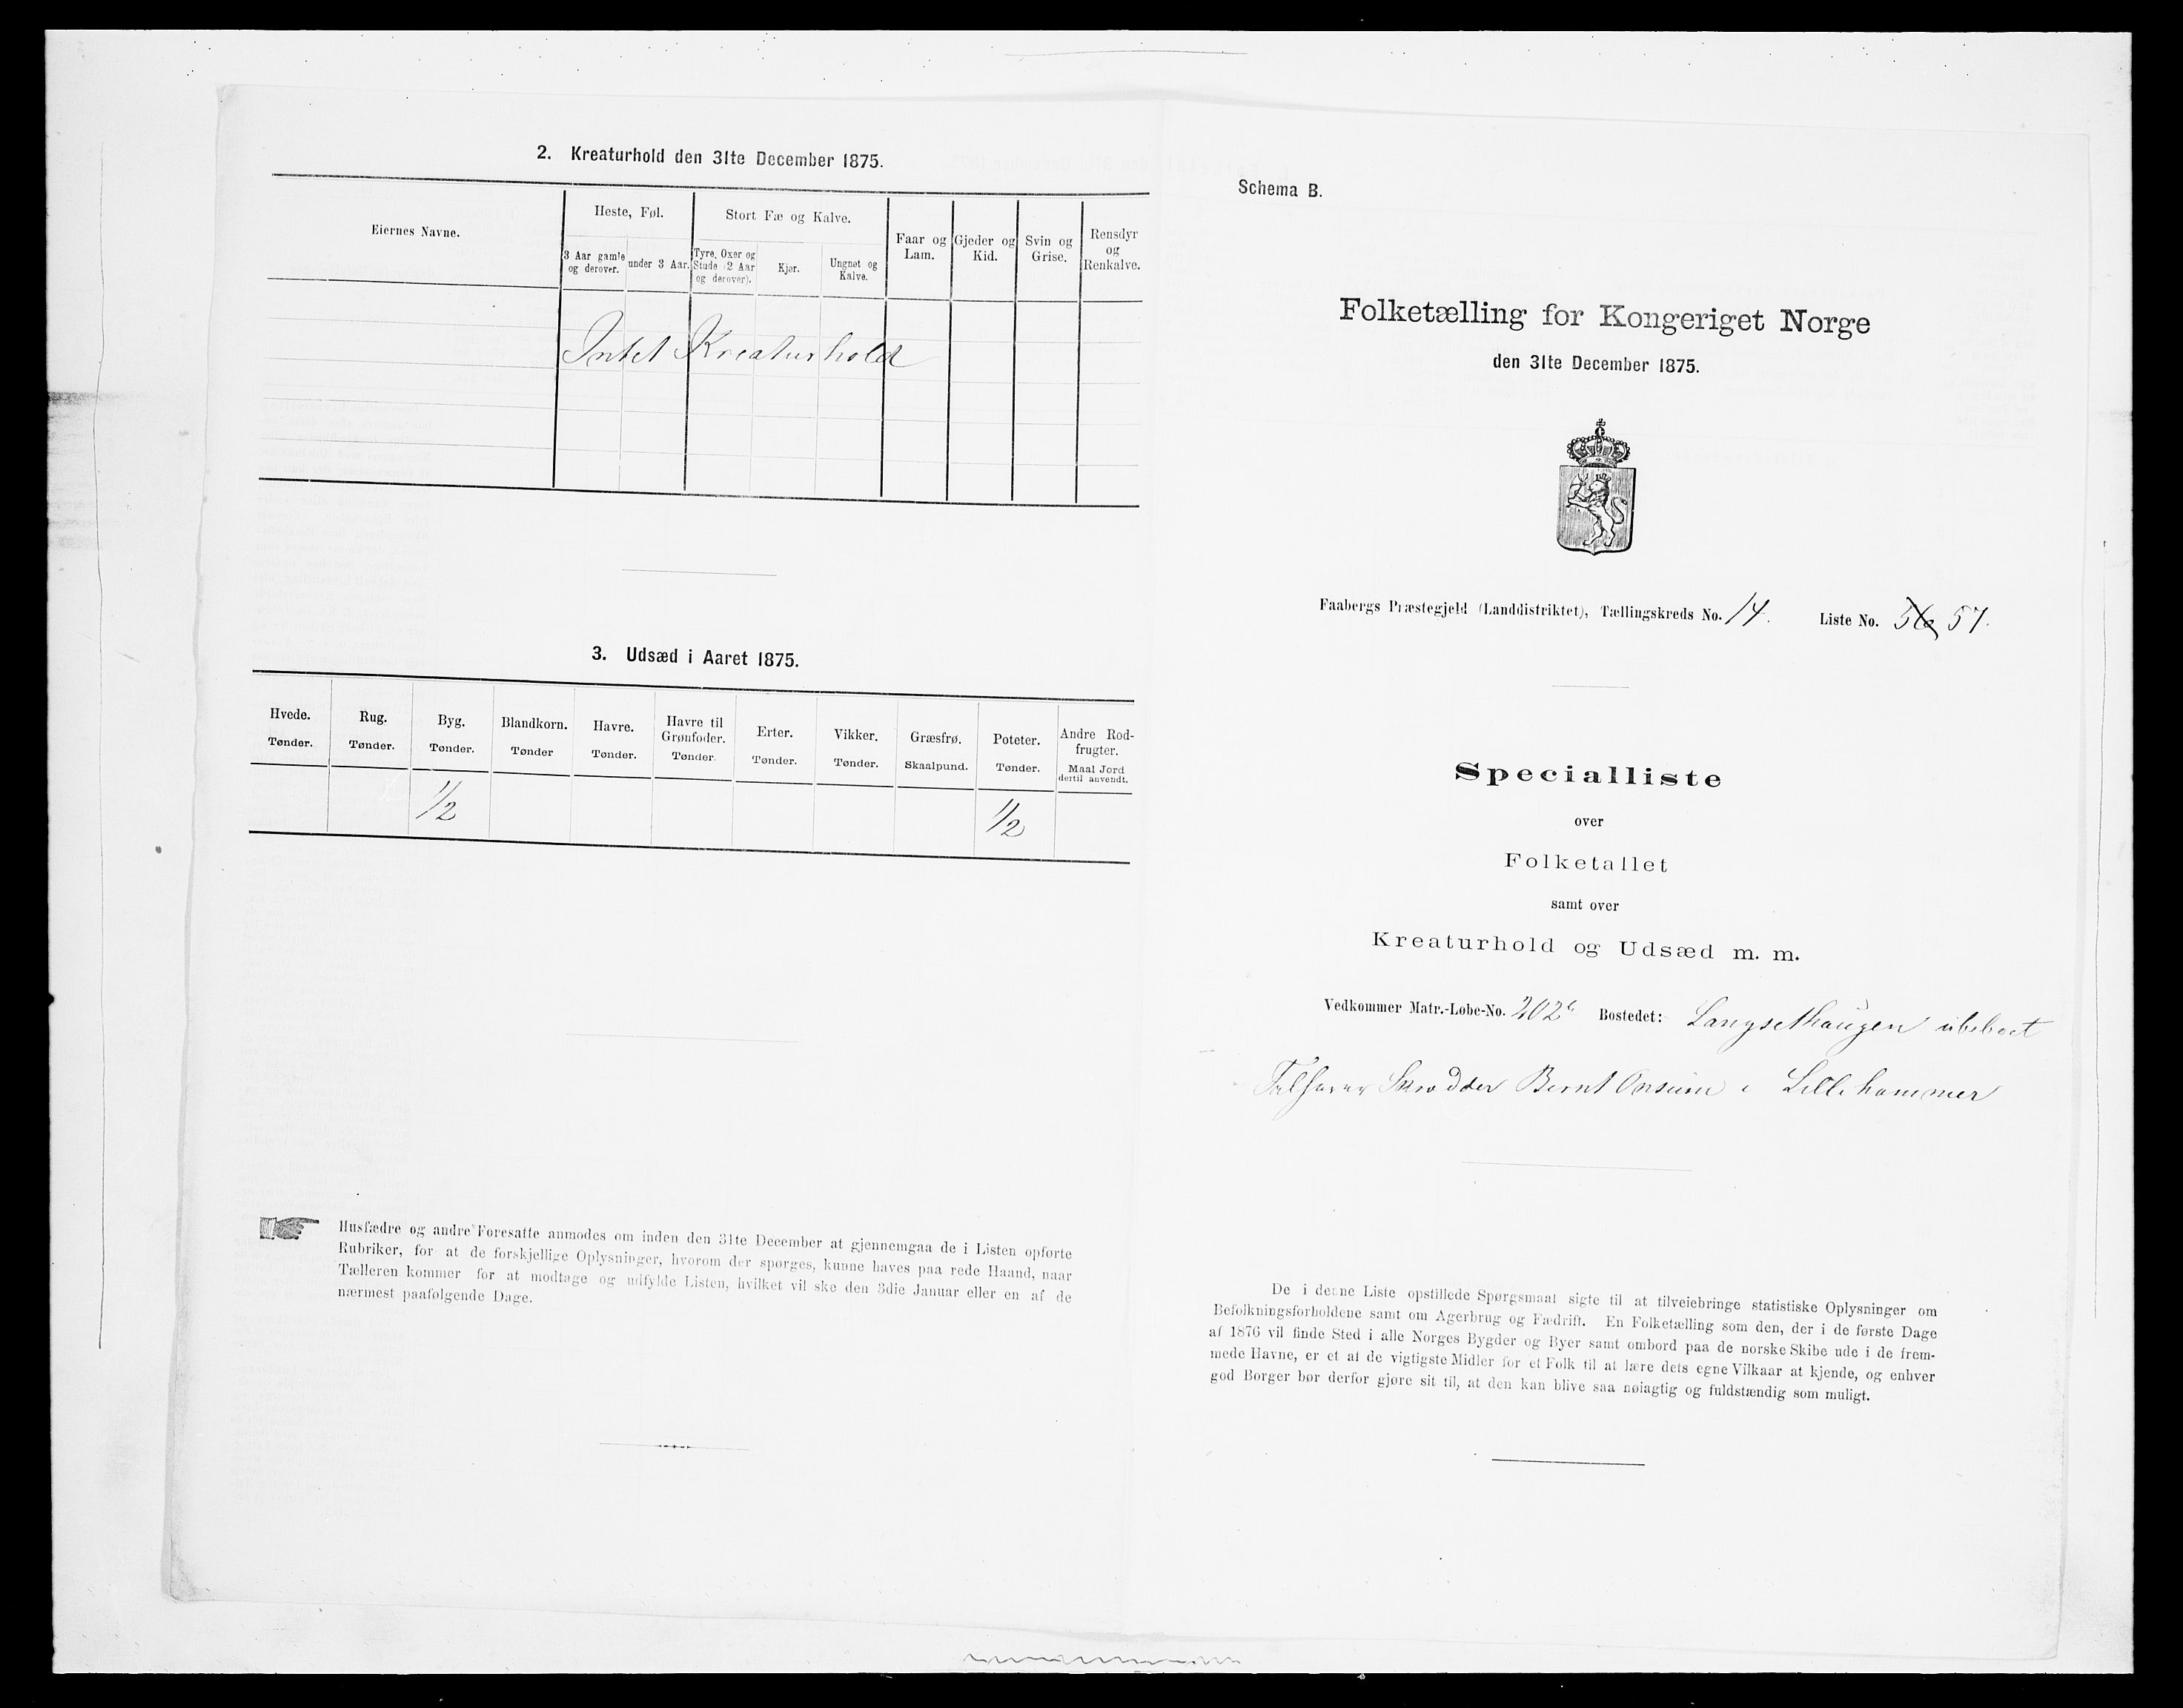 2. Kreaturhold den 31te December 1875.
Eiernes Navne.
Heste, Føl.
Stort Fæ og Kalve.
3 Aar gamle
og derover.
under 3 Aar.
Tyre, Oxer og
Stude (2 Aar
og derover).
Kjør.
Ungnøt og
Kalve.
Faar og
Lam.
Gjeder og
Kid.
Svin og
Grise.
Rensdyr
og
Renkalve.
Intet Kreaturhold
3. Udsæd i Aaret 1875.
Hvede.
Tønder.
Rug.
Tønder.
Byg.
Tønder.
Blandkorn.
Tønder
Havre.
Tønder.
Havre til
Grønfoder.
Tønder.
Erter.
Tønder.
Vikker.
Tønder.
Græsfrø.
Skaalpund.
Poteter.
Tønder.
Andre Rod-
frugter.
Maal Jord
dertil anvendt.
1/2 1/2
Husfædre og andre Foresatte anmodes om inden den 31te December at gjennemgaa de i Listen opførte
Rubriker, for at de forskjellige Oplysninger, hvorom der spørges, kunne haves paa rede Haand, naar
Tælleren kommer for at modtage og udfylde Listen, hvilket vil ske den 3die Januar eller en af de
nærmest paafølgende Dage.
Schema B.
Folketælling for Kongeriget Norge
den 31te December 1875.
Faabergs Præstegjeld (Landdistriktet), Tællingskreds No. 14. Liste No. 56 57.
Specialliste
over
Folketallet
samt over
Kreaturhold og Udsæd m. m.
Vedkommer Matr.-Løbe-No. 202 Bostedet: Langsethaugen ubeboet
Skrædder Bernt Onsum i Lillehammer
De i denne Liste opstillede Spørgsmaal sigte til at tilveiebringe statistiske Oplysninger om
Befolkningsforholdene samt om Agerbrug og Fædrift. En Folketælling som den, der i de første Dage
af 1876 vil finde Sted i alle Norges Bygder og Byer samt ombord paa de norske Skibe ude i de frem-
mede Havne, er et af de vigtigste Midler for et Folk til at lære dets egne Vilkaar at kjende, og enhver
god Borger bør derfor gjøre sit til, at den kan blive saa nøiagtig og fuldstændig som muligt.